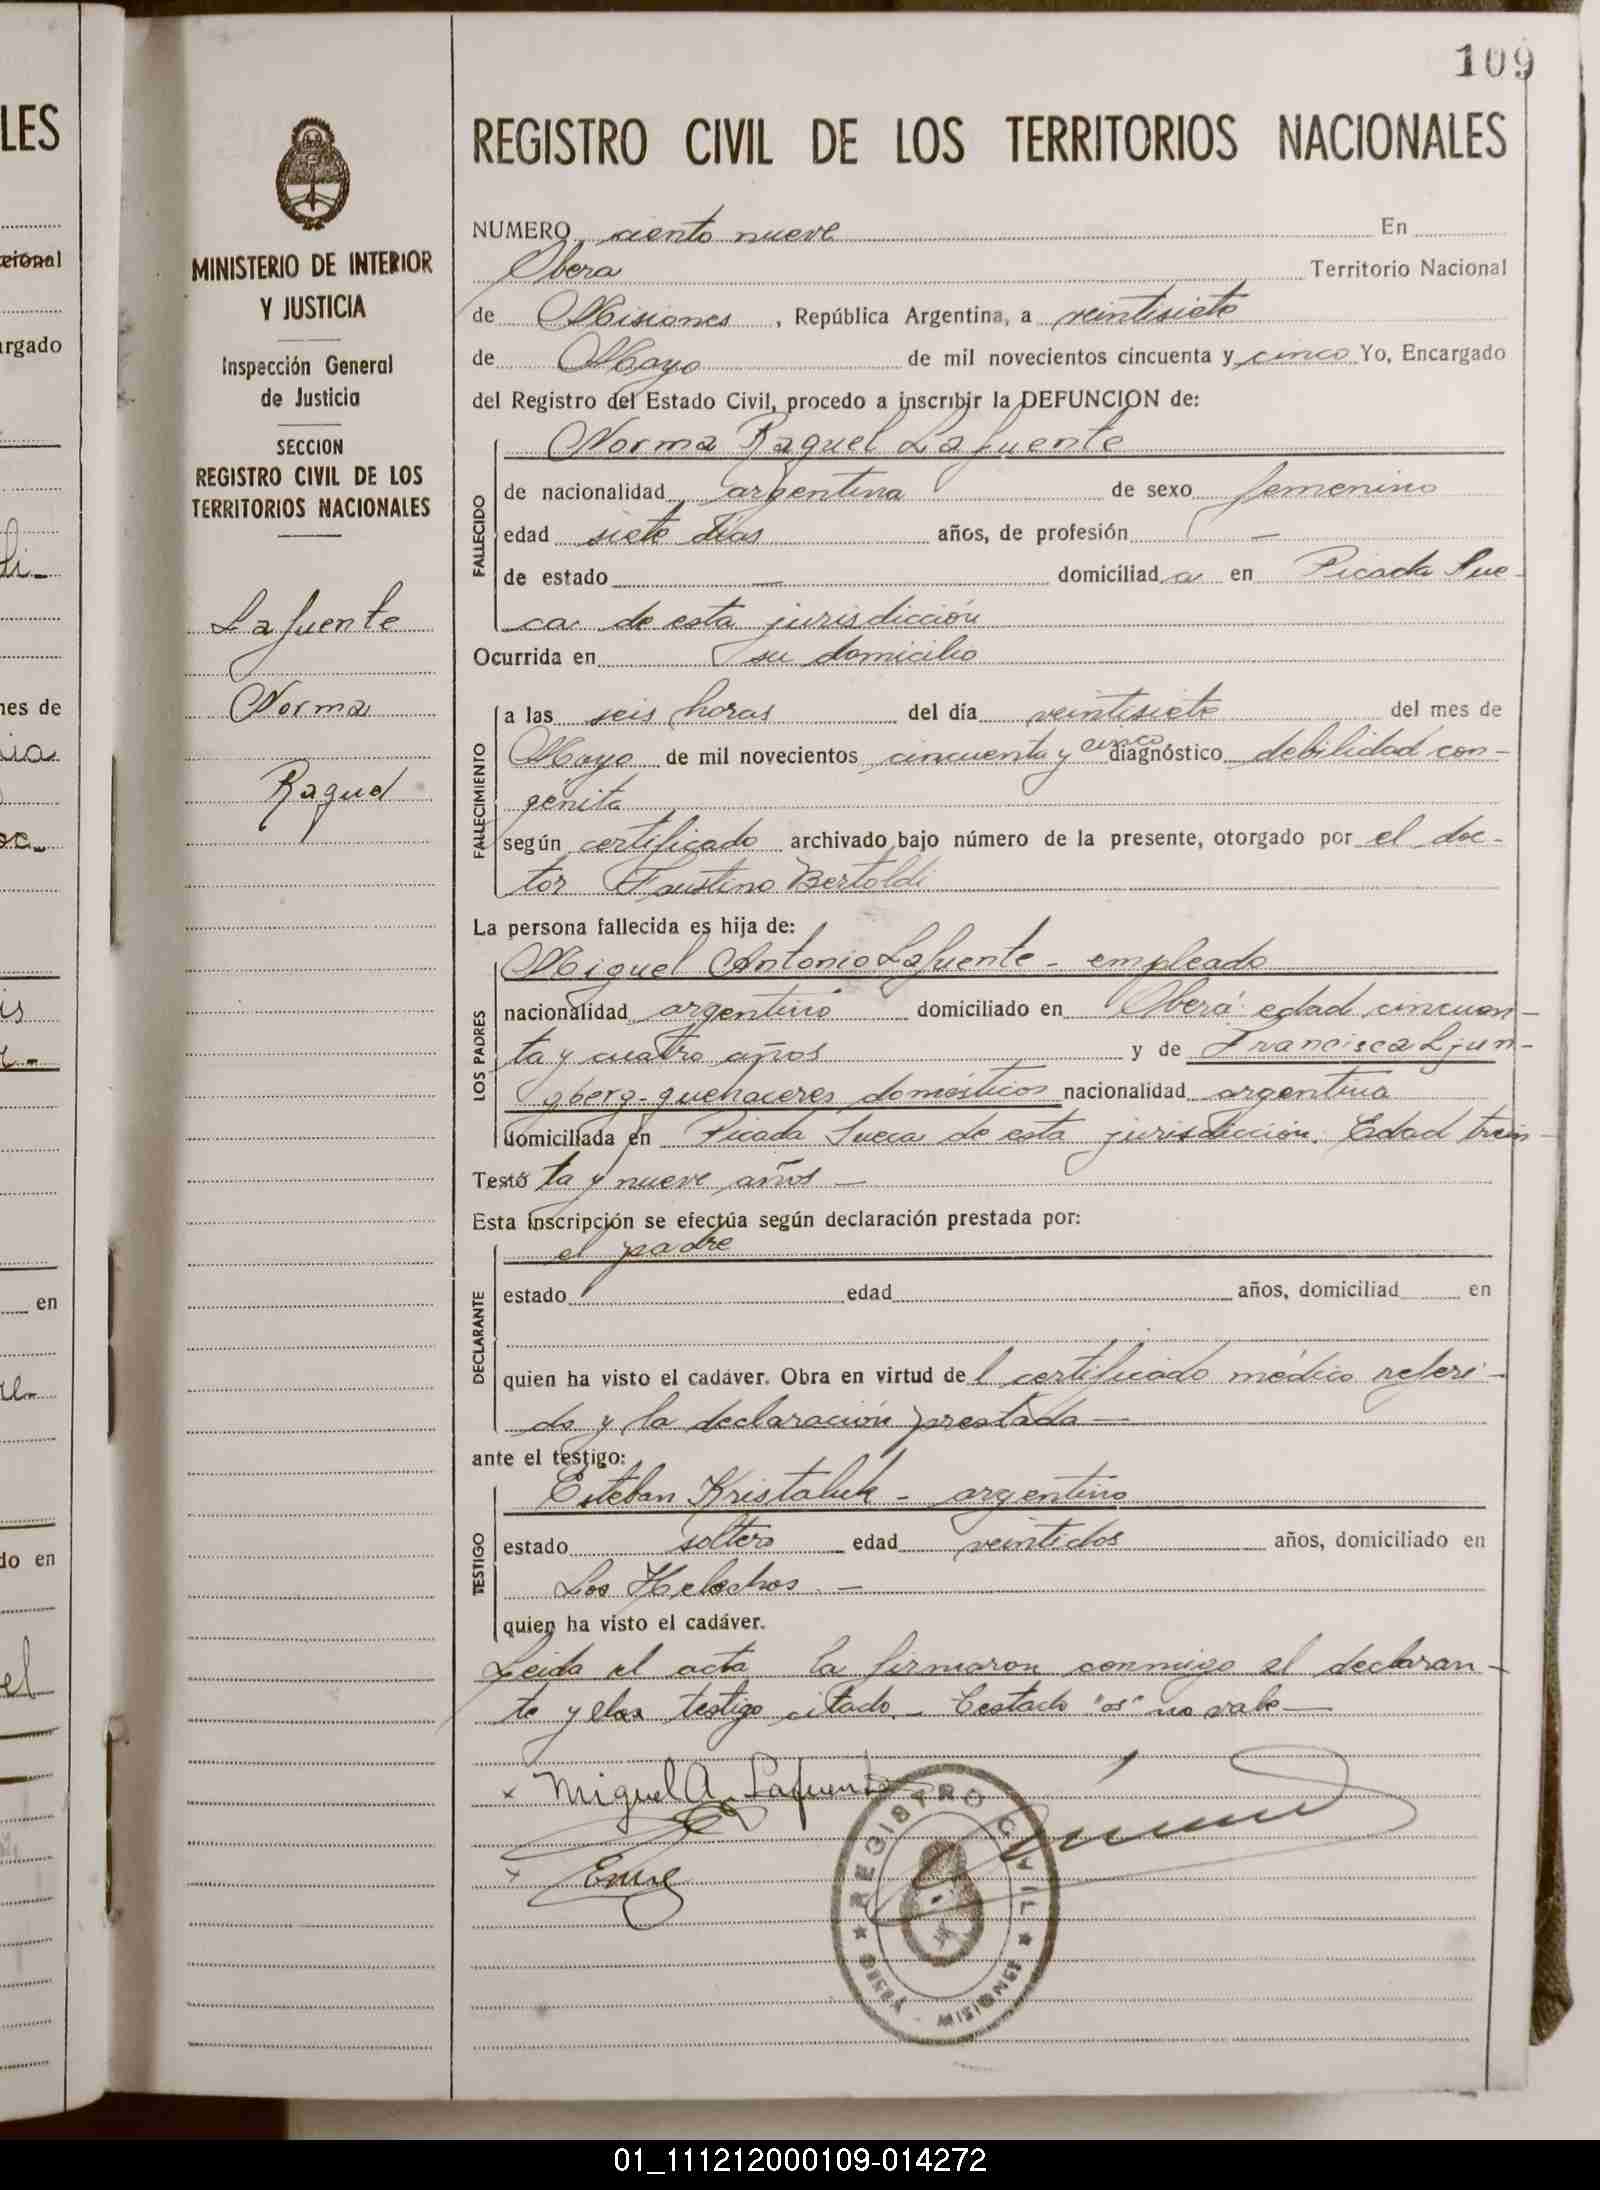 109
LES
REGISTRO CIVIL DE LOS TERRITORIOS NACIONALES
MINISTERIO DE INTERIOR
Y JUSTICIA
Inspección General
de Justicia
SECCION
REGISTRO CIVIL DE LOS
TERRITORIOS NACIONALES
Lafuente
Norma
Raquel
NUMERO ciento nueve En
Obera Territorio Nacional
de Misiones, República Argentina, a veintisiete
de Mayo de mil novecientos cincuenta y cinco Yo, Encargado
del Registro del Estado Civil, procedo a inscribir la DEFUNCION de:
FALLECIDO
Norma Raquel Lafuente
de nacionalidad argentina de sexo femenino
edad siete días años, de profesión —
de estado — domiciliada en Picada Sue-
ca de esta jurisdicción
Ocurrida en su domicilio
FALLECIMIENTO
a las seis horas del día veintisiete del mes de
Mayo de mil novecientos cincuenta y cinco diagnóstico debilidad con-
genita
según certificado archivado bajo número de la presente, otorgado por el doc-
tor Faustino Bertoldi
La persona fallecida es hija de:
LOS PADRES
Miguel Antonio Lafuente - empleado
nacionalidad argentino domiciliado en Oberá edad cincuen-
ta y cuatro años y de Francisca Ljun-
gberg - quehaceres domésticos nacionalidad argentina
domiciliada en Picada Sueca de esta jurisdicción. Edad trein-
Testó ta y nueve años —
Esta inscripción se efectúa según declaración prestada por:
DECLARANTE
el padre
estado edad años, domiciliad en
quien ha visto el cadáver. Obra en virtud del certificado médico referi-
do y la declaración prestada —
ante el testigo:
TESTIGO
Esteban Kristaluk - argentino
estado soltero edad veintidos años, domiciliado en
Los Helechos. —
quien ha visto el cadáver.
Leida el acta la firmaron conmigo el declaran-
te y el testigo citado. — Testado "os" no vale —
x Miguel A. Lafuente
x
REGISTRO CIVIL
MISIONES
01_111212000109-014272